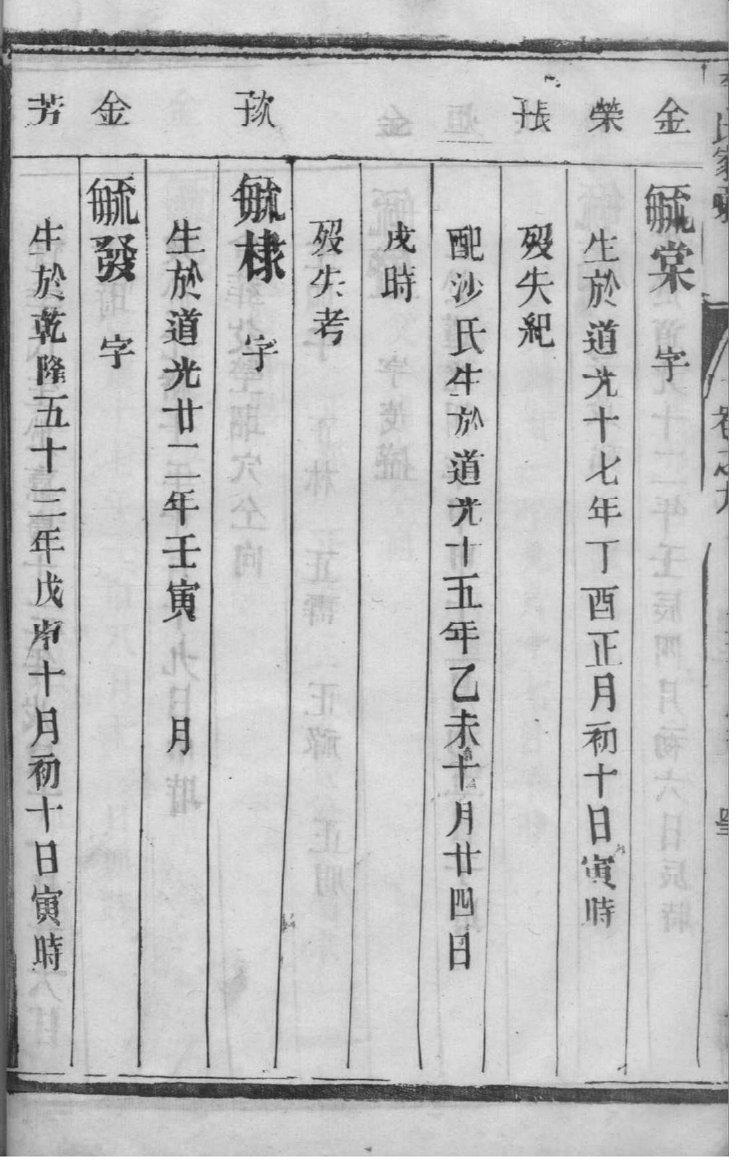 金榮長子
次子
金芳
毓棠 字
生於道光十七年丁酉正月初十日寅時
歿失紀
配沙氏生於道光十五年乙未十月廿四日
戌時
歿失考
毓棣 字
生於道光廿二年壬寅 月
毓發 字
生於乾隆五十三年戊申十月初十日寅時